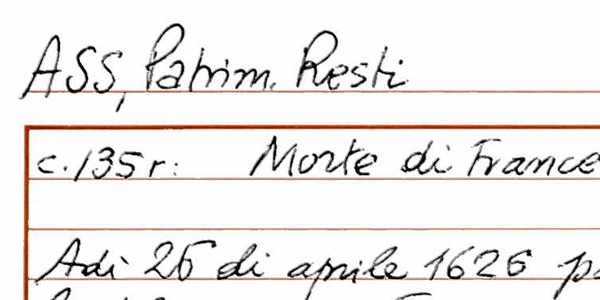 ASS, Patrim. Resti
c. 135 r: Morte di France
Adì 25 di aprile 1626